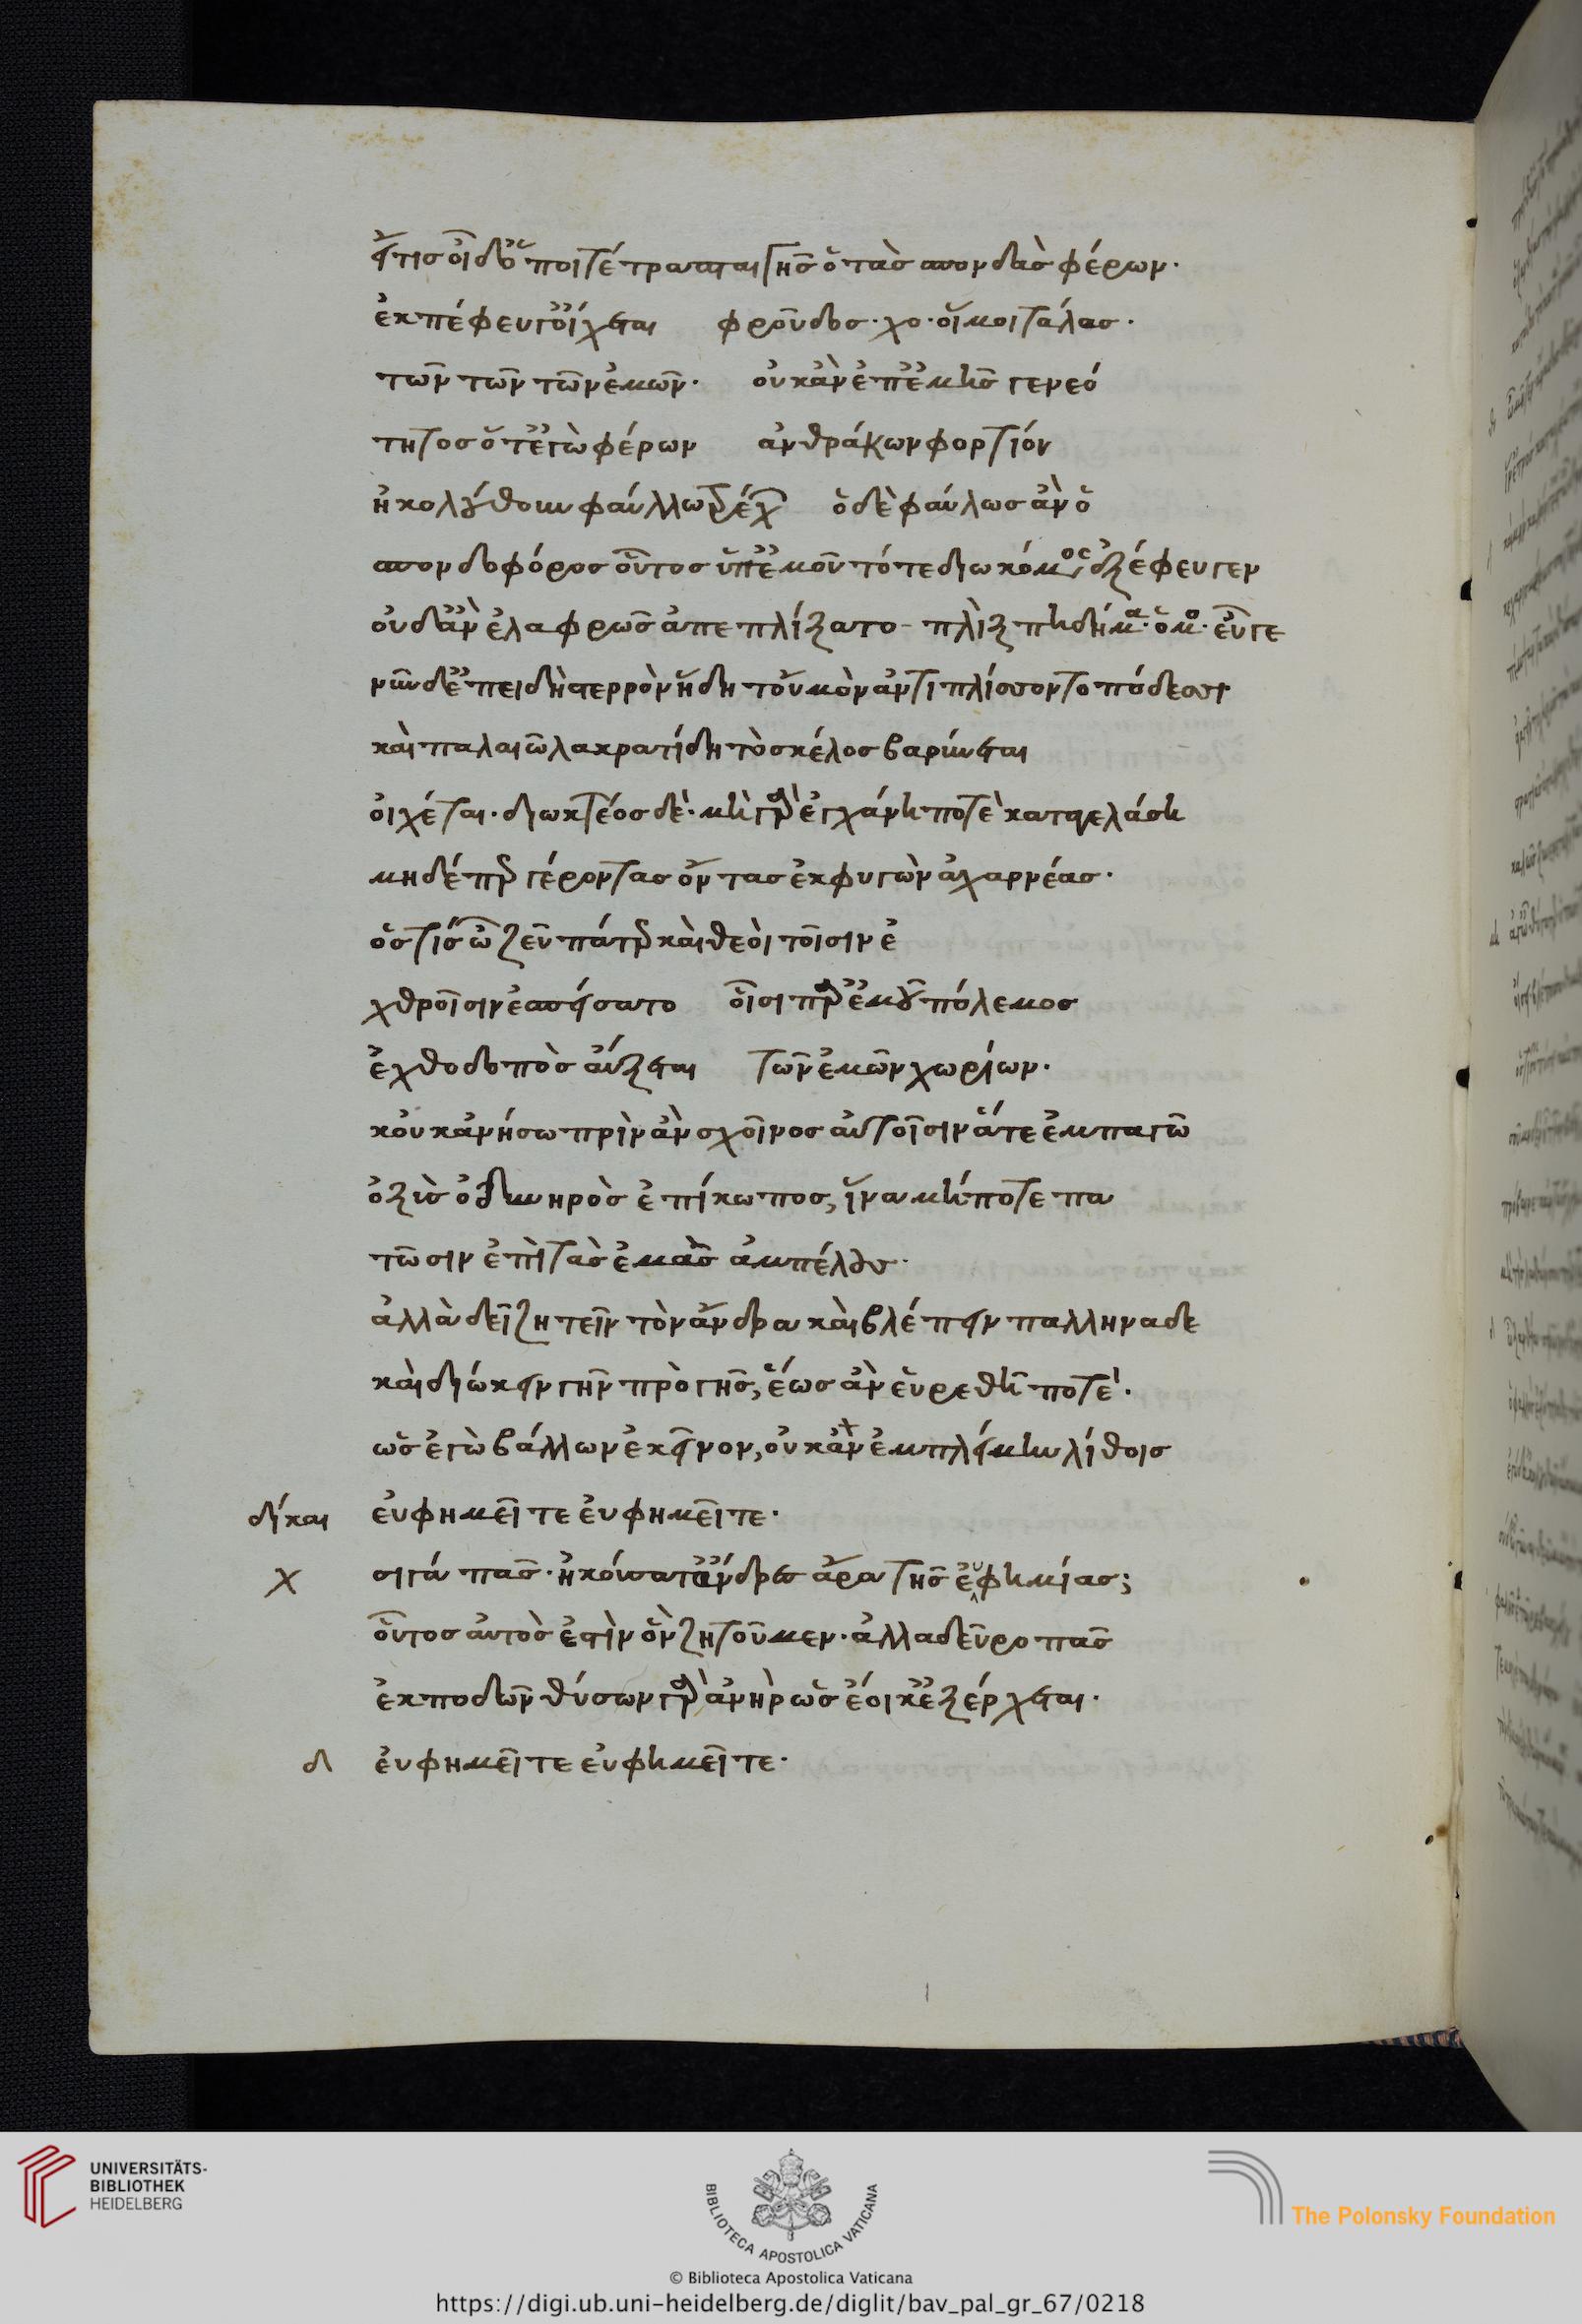 εἴ τις οἶδ' ὅποι τέτραπται γῆς ὁ τὰς σπονδὰς φέρων.
ἐκπέφευγ' οἴχεται φροῦδος. χο. οἴμοι τάλας.
τῶν τῶν τῶν ἐμῶν. οὐκ ἂν ἐπ' ἐμῆς γε νεό
τητος ὅτ' ἐγὼ φέρων ἀνθράκων φορτίον
ἠκολούθουν φαύλλω τρέχ ὁδὲ φαύλως ἂν ὁ
σπονδοφόρος οὗτος ὑπ' ἐμοῦ τότε διωκόμενος ἐξέφευγεν
οὐδ' ἂν ἐλαφρῶς ἀπεπλίξατο
νῦν δ' ἐπειδὴ στερρὸν ἤδη τοὐμὸν ἀντιπλίσσοντο πόδεσσι
καὶ παλαιῶ λακρατίδη τὸ σκέλος βαρύνεται
οἰχέται. διωκτέος δὲ. μὴ γὰρ ἐγχάνη ποτὲ κατγελάση
μηδέ περ γέροντας ὄντας ἐκφυγὼν ἀχαρνέας.
ὅστις ὦ ζεῦ πάτερ καὶ θεοὶ τοῖσιν ἐ
χθροῖσιν ἐσπείσατο οἷσι παρ' ἐμοῦ πόλεμος
ἐχθοδοπὸς αὔξεται τῶν ἐμῶν χωρίων.
κοὐκ ἀνήσω πρὶν ἂν σχοῖνος αὐτοῖσιν ἅτε ἐμπαγῶ
ὀξὺς ὀδυνηρὸς ἐπίκωπος, ἵνα μήποτε πα
τῶσιν ἐπὶ τὰς ἐμὰς ἀμπέλους.
ἀλλὰ δεῖ ζητεῖν τὸν ἄνδρα καὶ βλέπειν παλληναδε
καὶ διώκειν γῆν πρὸ γῆς, ἕως ἂν εὑρεθῆ ποτέ.
ὡς ἐγὼ βάλλων ἐκεῖνον, οὐκ ἂν ἐμπλείμην λίθοις
δίκαι εὐφημεῖτε εὐφημεῖτε.
χ σίγα πᾶς. ἠκούσατ' ἄνδρες ἄρα τῆς εὐφημίας;
οὗτος αὐτὸς ἐστὶν ὃν ζητοῦμεν. ἀλλα δεῦρο πᾶς
ἐκποδὼν θύσων γὰρ ἀνὴρ ὡς ἔοικ' ἐξέρχεται.
δ εὐφημεῖτε εὐφημεῖτε.
UNIVERSITÄTS-
BIBLIOTHEK
HEIDELBERG
BIBLIOTECA APOSTOLICA VATICANA
The Polonsky Foundation
© Biblioteca Apostolica Vaticana
https://digi.ub.uni-heidelberg.de/diglit/bav_pal_gr_67/0218